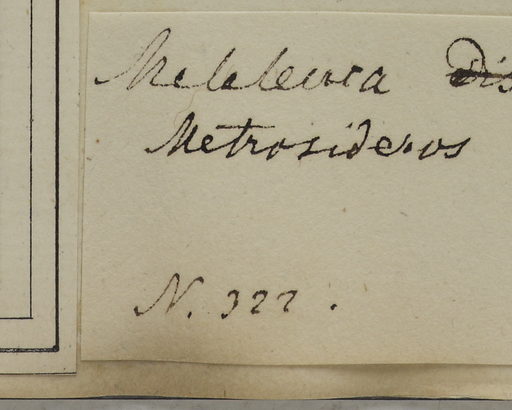 Melaleuca
Metrosideros
N. 322.